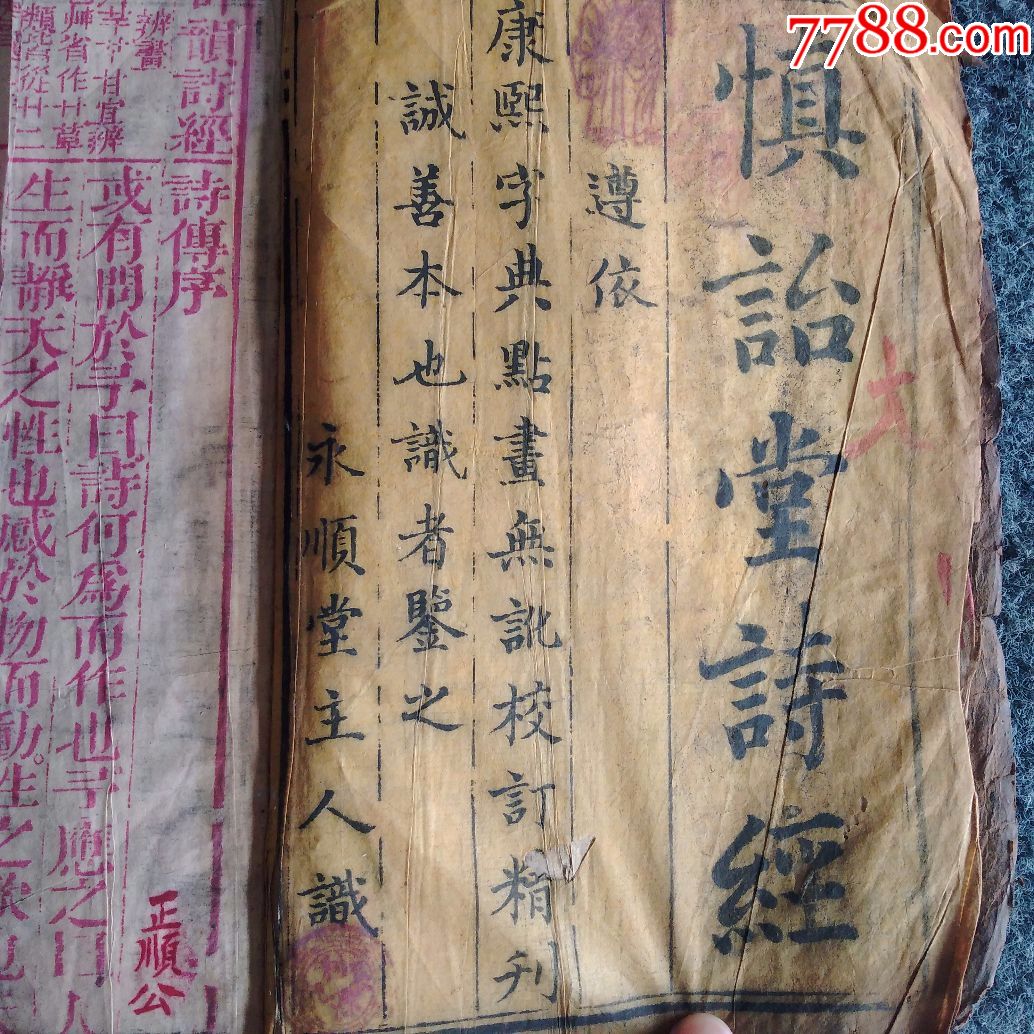 7788.com
慎詒堂詩經
遵依
康熙字典點畫無訛校訂精刋
誠善本也識者鑒之
永順堂主人識
韻詩經
詩傳序
或有問於予曰詩何爲而作也予應之曰人
生而靜天之性也感於物而動性之欲也
辨畫
甘宜辨
省作廿草
正順公